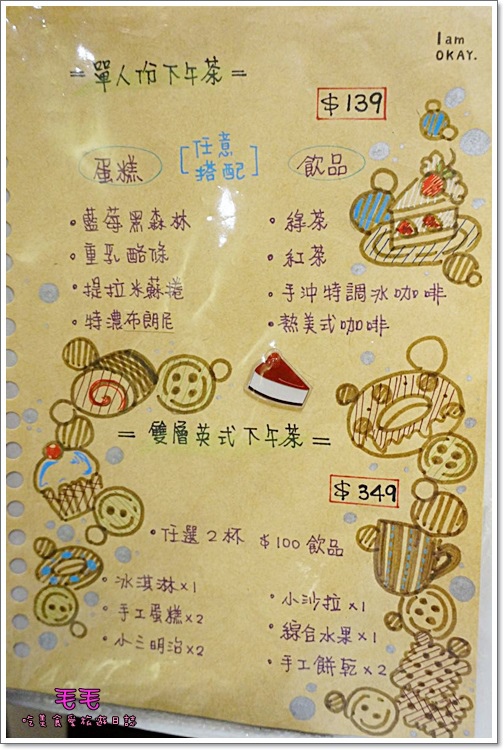 I am
OKAY.
= 單人份下午茶 =
$139
蛋糕 [任意搭配] 飲品
・藍莓黑森林
・重乳酪條
・提拉米蘇捲
・特濃布朗尼
・綠茶
・紅茶
・手沖特調冰咖啡
・熱美式咖啡
= 雙層英式下午茶 =
$349
・任選2杯 $100飲品
・冰淇淋x1
・手工蛋糕x2
・小三明治x2
・小沙拉x1
・綜合水果x1
・手工餅乾x2
毛毛
吃美食愛旅遊日誌